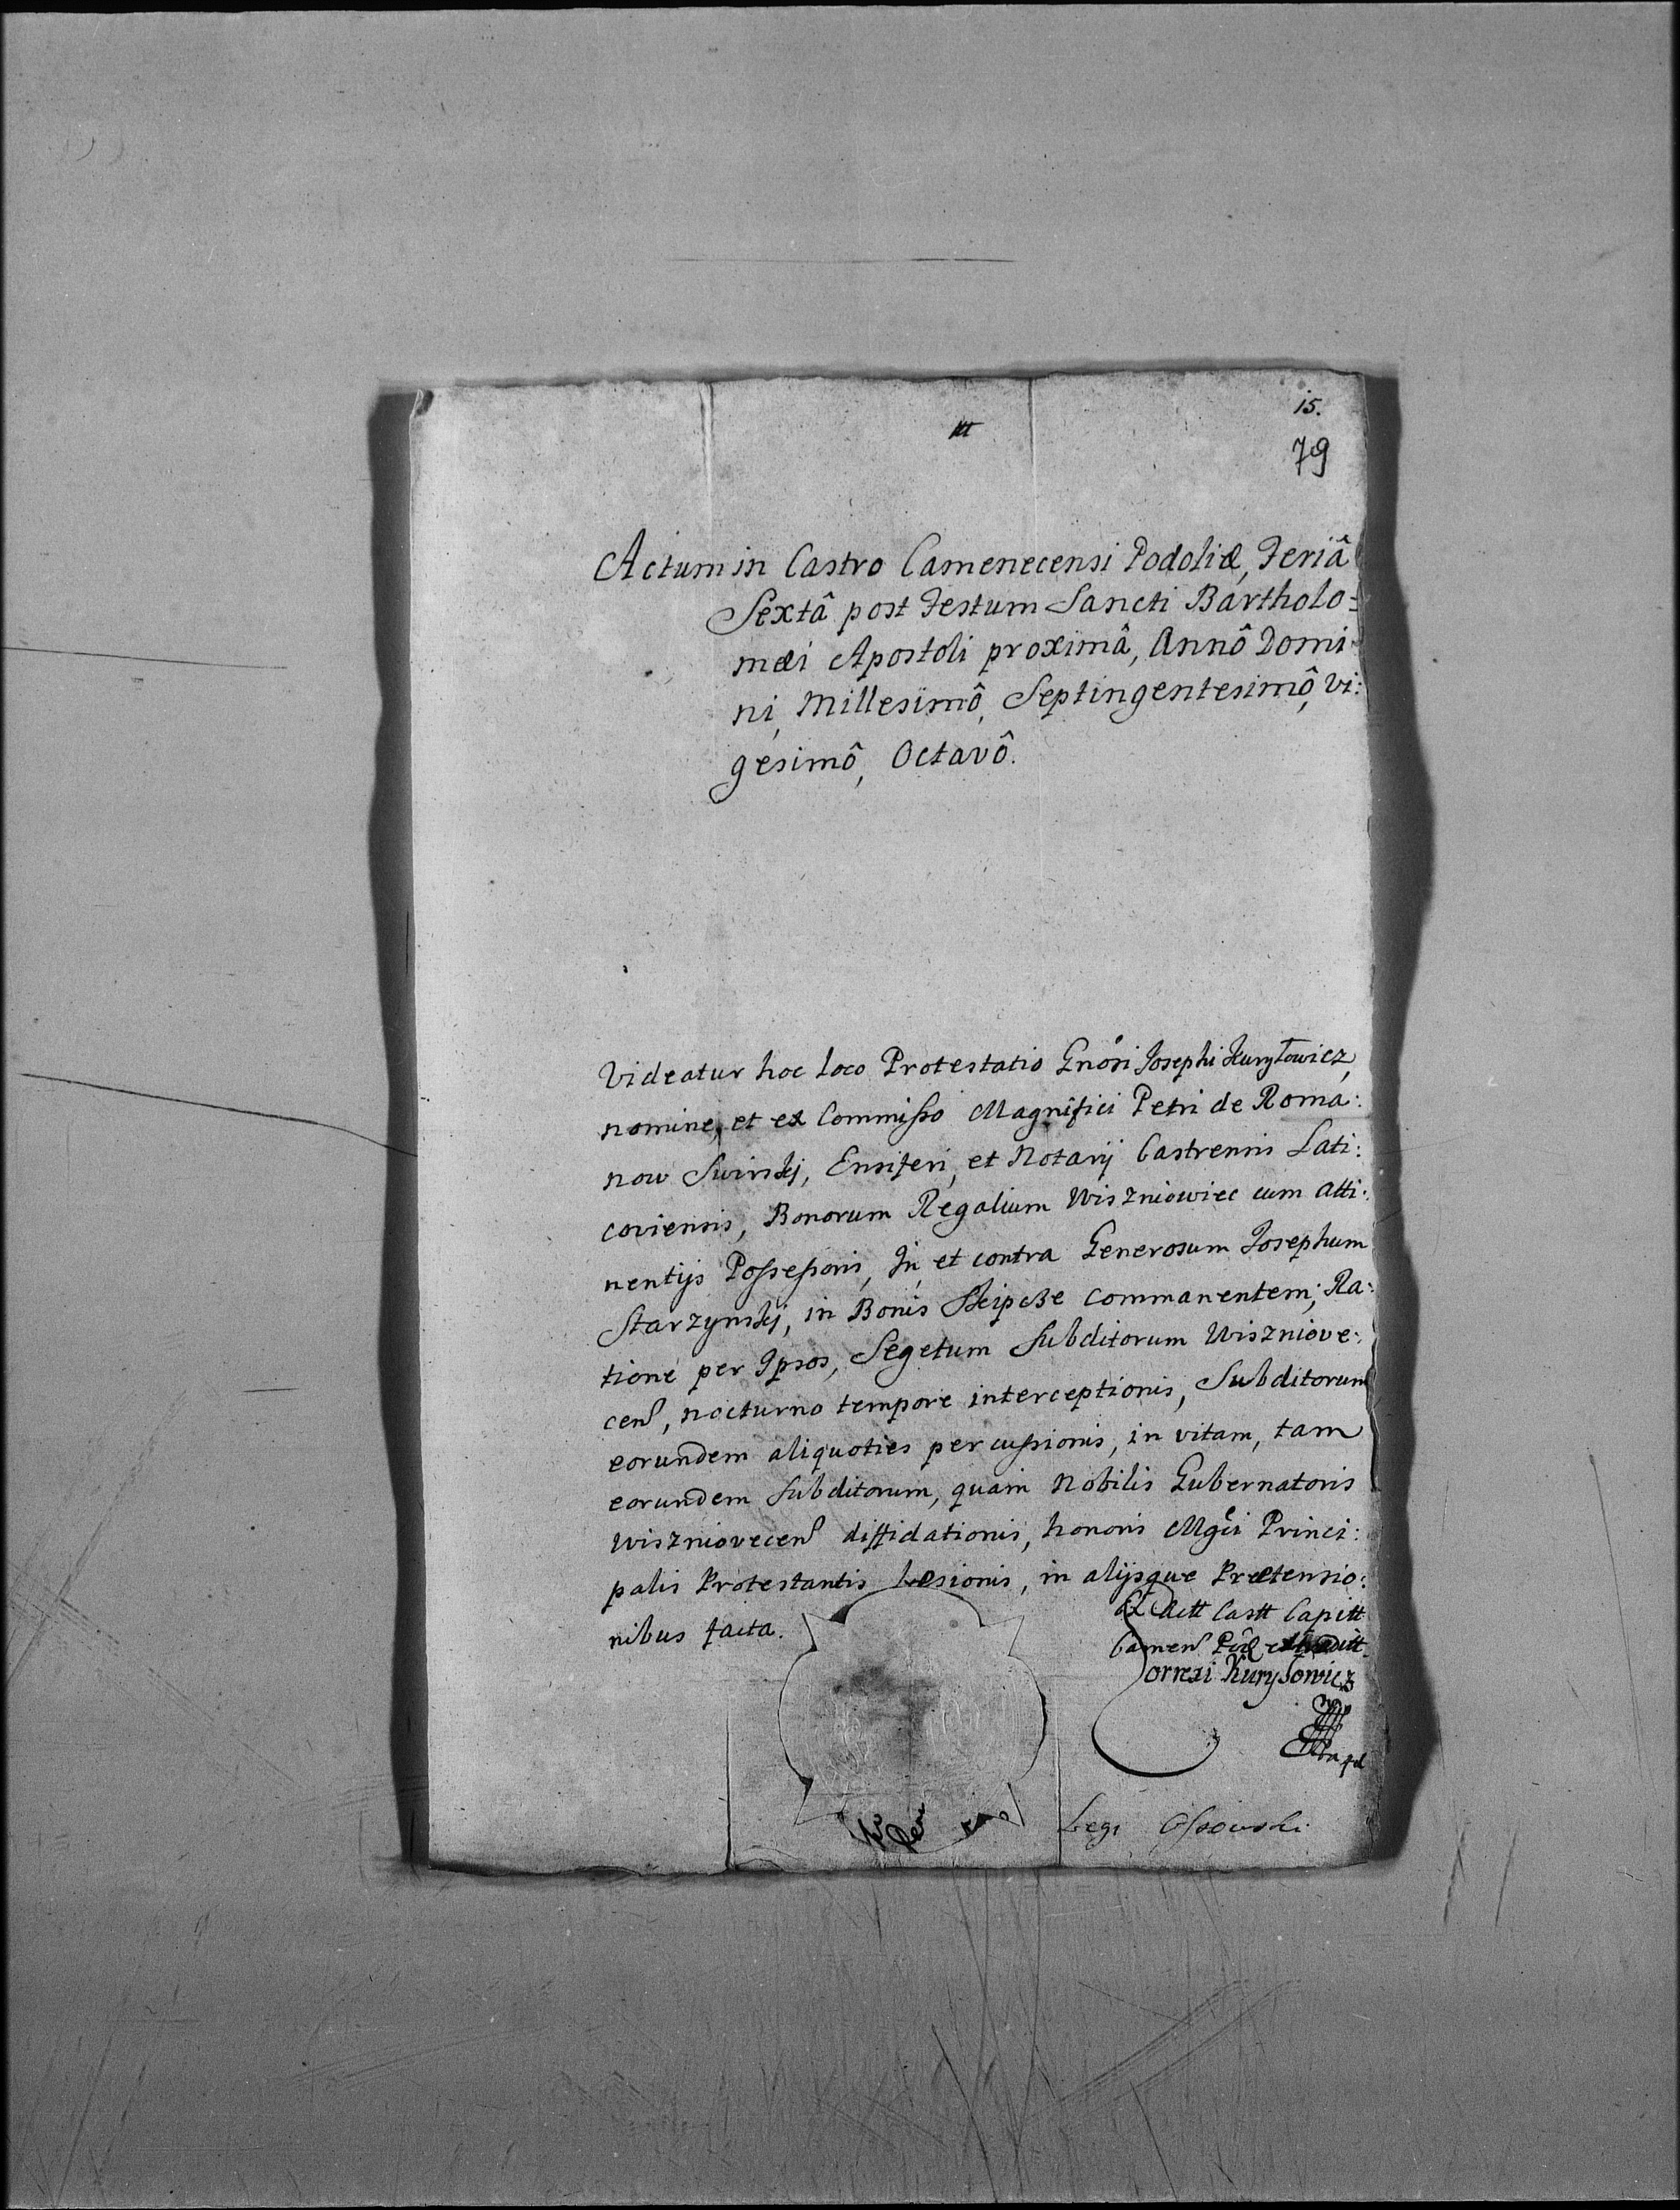 15.
79
Actum in Castro Camenecensi Podoliæ, Feriâ
Sextâ post Festum Sancti Bartholo=
mæi Apostoli proximâ, Annô Domi
ni, Millesimô, Septingentesimô, vi:
gesimô, Octavô.
Videatur hoc loco Protestatio Gnosi Josephi Kuryłowicz,
nomine, et ex Commisso Magnifici Petri de Roma:
now Swirskj, Ensiferi, et Notarij Castrensis Lati:
coviensis, Bonorum Regalium Wiszniowiec cum atti:
nentijs Possessoris, In, et contra Generosum Josephum
Starzynskj, in Bonis Skipcze commanentem; Ra:
tione per Ipsos, Segetum Subditorum Wiszniove:
cen, nocturno tempore interceptionis, Subditorum
eorundem aliquoties percussionis, in vitam, tam
eorundem subditorum, quam Nobilis Gubernatoris
Wiszniovecen diffidationis, honoris Mgci Princi:
palis Protestantis Læsionis, in alijsque Prætensio:
nibus facta.
Ex Actt Castt Capitt
Camen Pod
Correxi Kuryłowicz
Legi Ossowski